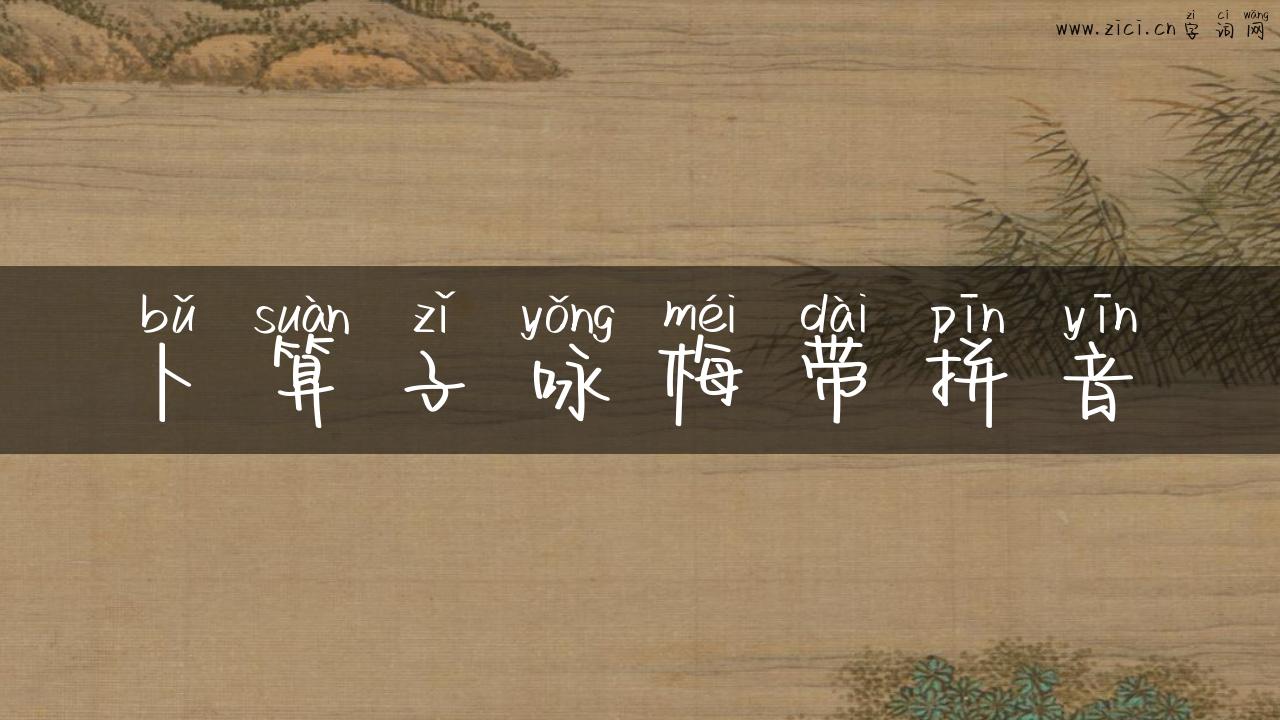 zì cí wǎng
www.zici.cn 字 词 网
bǔ suàn zǐ yǒng méi dài pīn yīn
卜 算 子 咏 梅 带 拼 音